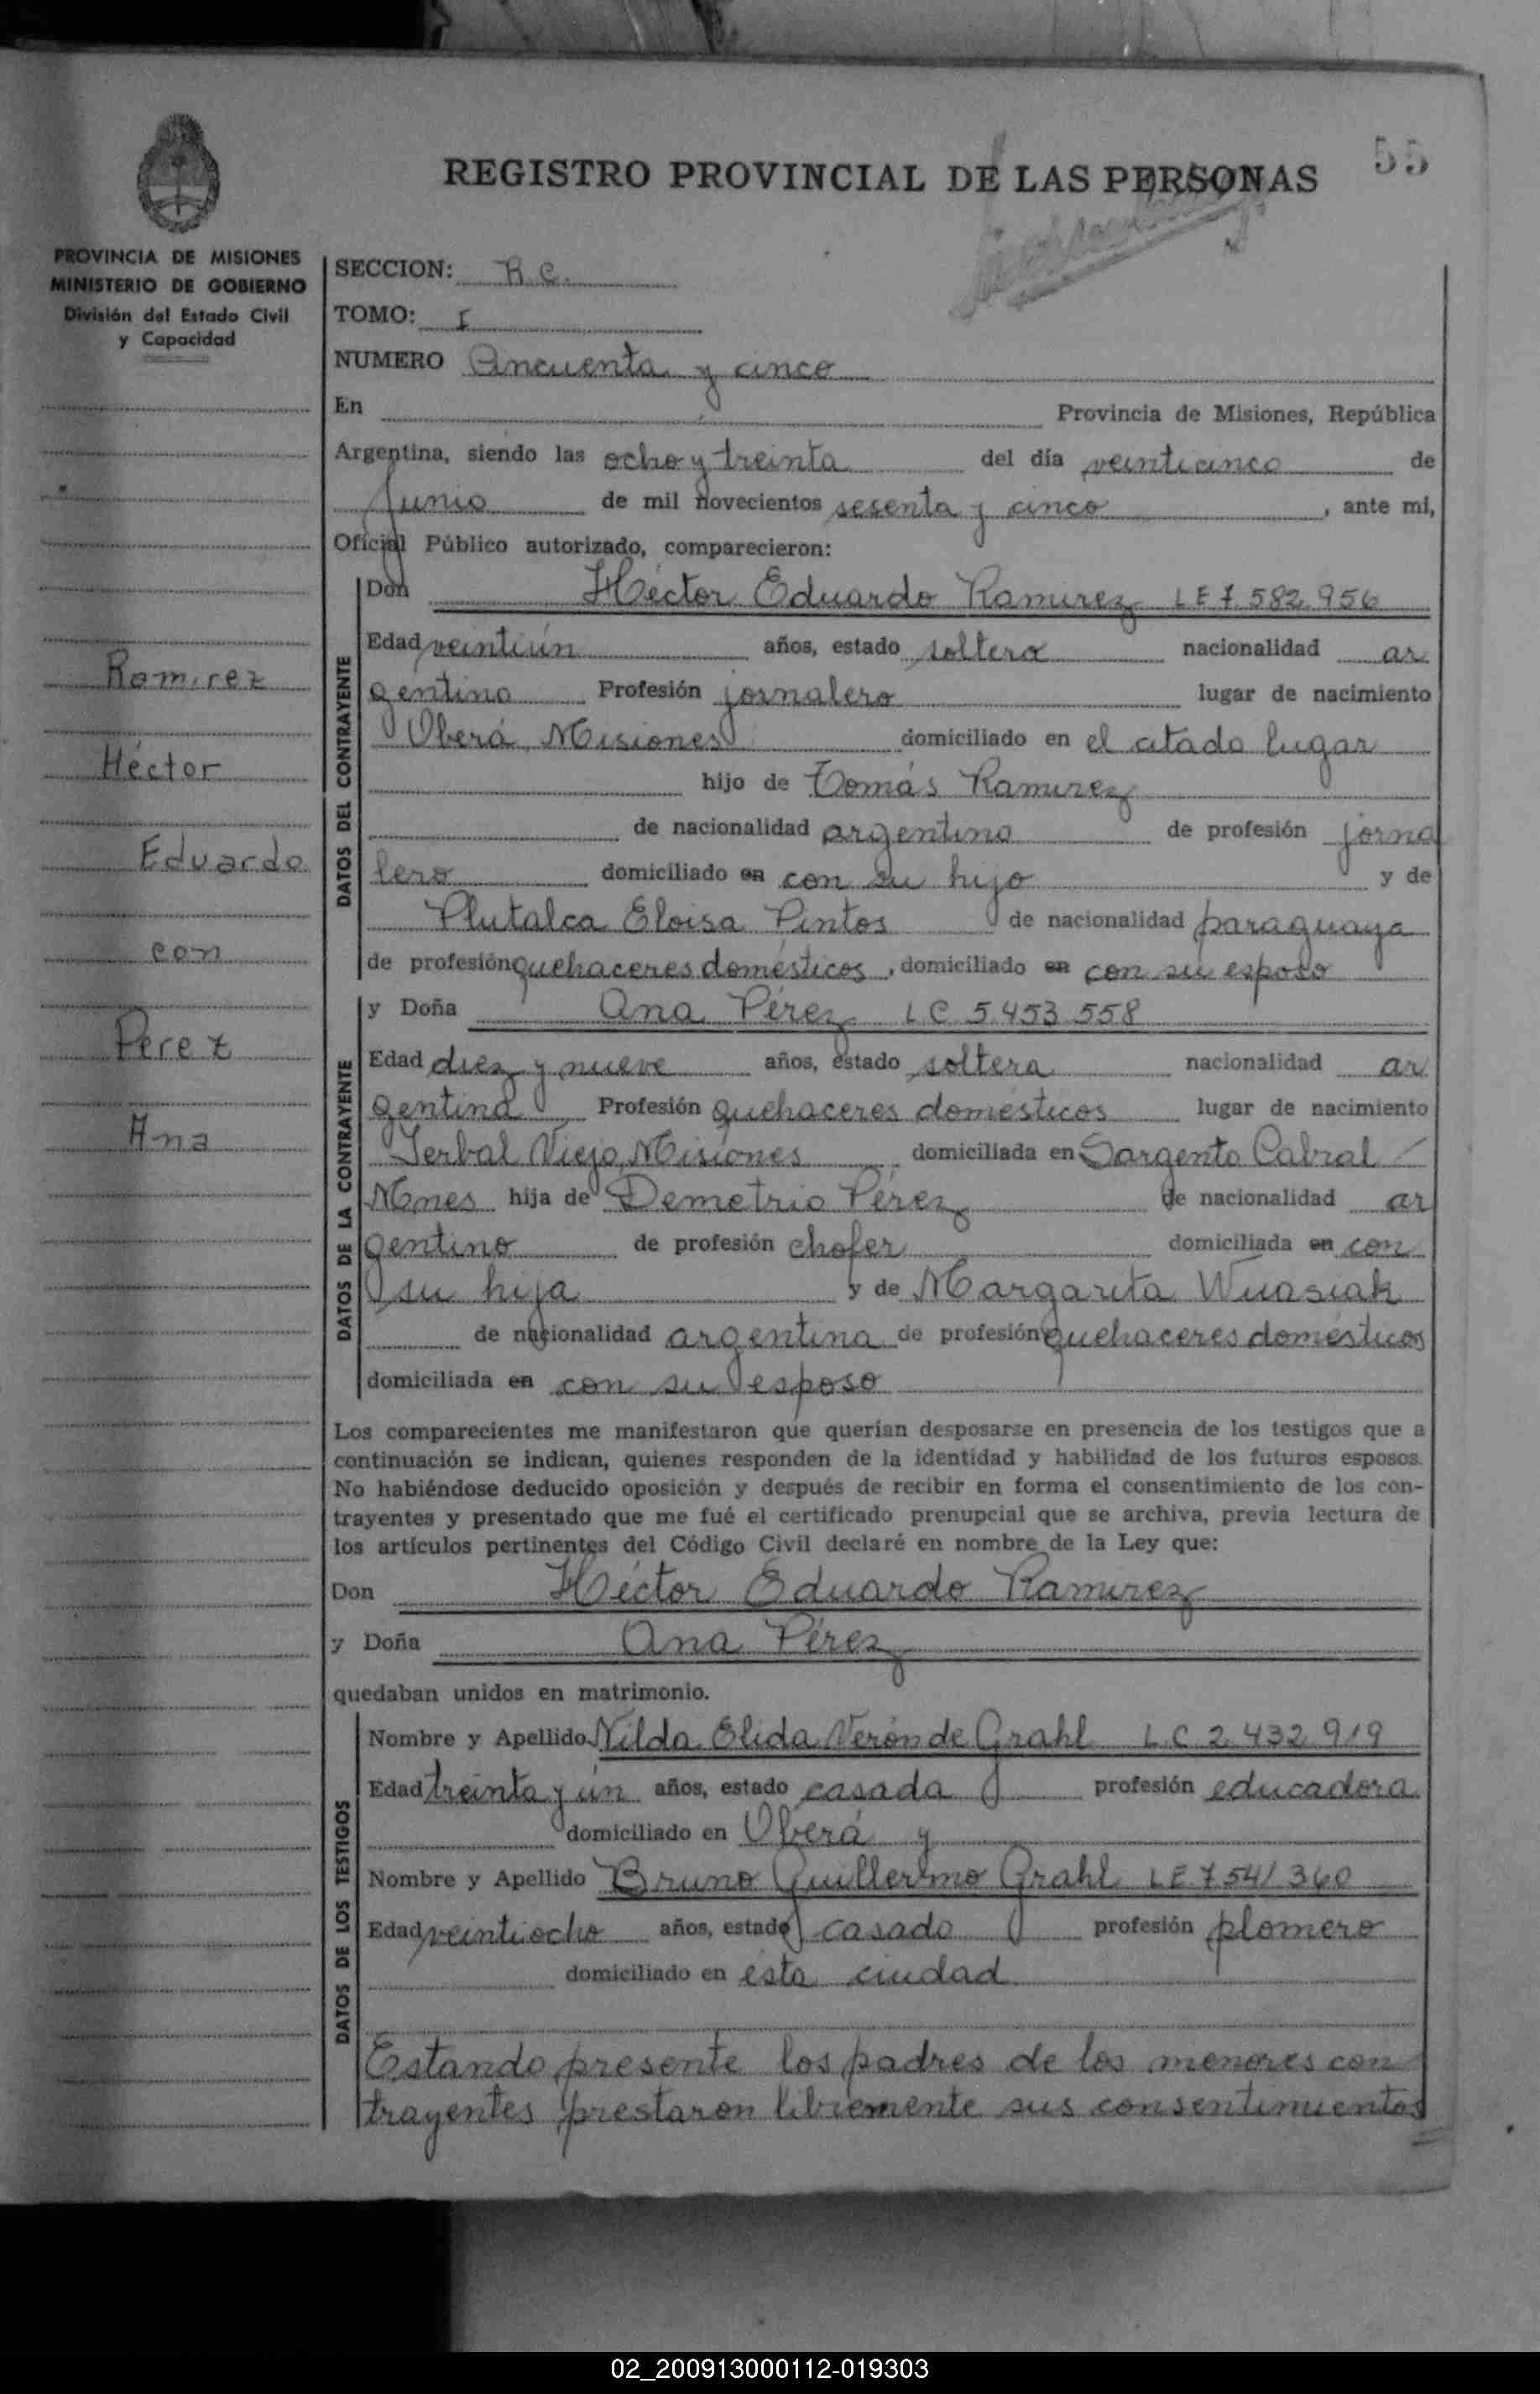 55
REGISTRO PROVINCIAL DE LAS PERSONAS
PROVINCIA DE MISIONES
MINISTERIO DE GOBIERNO
División del Estado Civil
y Capacidad
Ramirez
Héctor
Eduardo
con
Perez
Ana
SECCION: R.C.
TOMO: I
NUMERO Cincuenta y cinco
En Provincia de Misiones, República
Argentina, siendo las ocho y treinta del día veinticinco de
Junio de mil novecientos sesenta y cinco, ante mi,
Oficial Público autorizado, comparecieron:
DATOS DEL CONTRAYENTE
Don Héctor Eduardo Ramirez LE 7.582.956
Edad veintiún años, estado soltero nacionalidad ar
gentino Profesión jornalero lugar de nacimiento
Oberá, Misiones domiciliado en el citado lugar
hijo de Tomás Ramirez
de nacionalidad argentino de profesión jorna
lero domiciliado en con su hijo y de
Plutalca Eloisa Pintos de nacionalidad paraguaya
de profesión quehaceres domésticos, domiciliado en con su esposo
DATOS DE LA CONTRAYENTE
y Doña Ana Pérez LC 5.453.558
Edad diez y nueve años, estado soltera nacionalidad ar
gentina Profesión quehaceres domésticos lugar de nacimiento
Yerbal Viejo, Misiones domiciliada en Sargento Cabral /
Mnes hija de Demetrio Pérez de nacionalidad ar
gentino de profesión chofer domiciliada en con
su hija y de Margarita Wuasiak
de nacionalidad argentina de profesión quehaceres domésticos
domiciliada en con su esposo
Los comparecientes me manifestaron que querían desposarse en presencia de los testigos que a
continuación se indican, quienes responden de la identidad y habilidad de los futuros esposos.
No habiéndose deducido oposición y después de recibir en forma el consentimiento de los con-
trayentes y presentado que me fué el certificado prenupcial que se archiva, previa lectura de
los artículos pertinentes del Código Civil declaré en nombre de la Ley que:
Don Héctor Eduardo Ramirez
y Doña Ana Pérez
quedaban unidos en matrimonio.
DATOS DE LOS TESTIGOS
Nombre y Apellido Nilda Elida Verón de Grahl L.C 2.432.919
Edad treinta y un años, estado casada profesión educadora
domiciliado en Oberá y
Nombre y Apellido Bruno Guillermo Grahl LE.7.541.360
Edad veintiocho años, estado casado profesión plomero
domiciliado en esta ciudad
Estando presente los padres de los menores con
trayentes prestaron libremente sus consentimientos
02_200913000112-019303